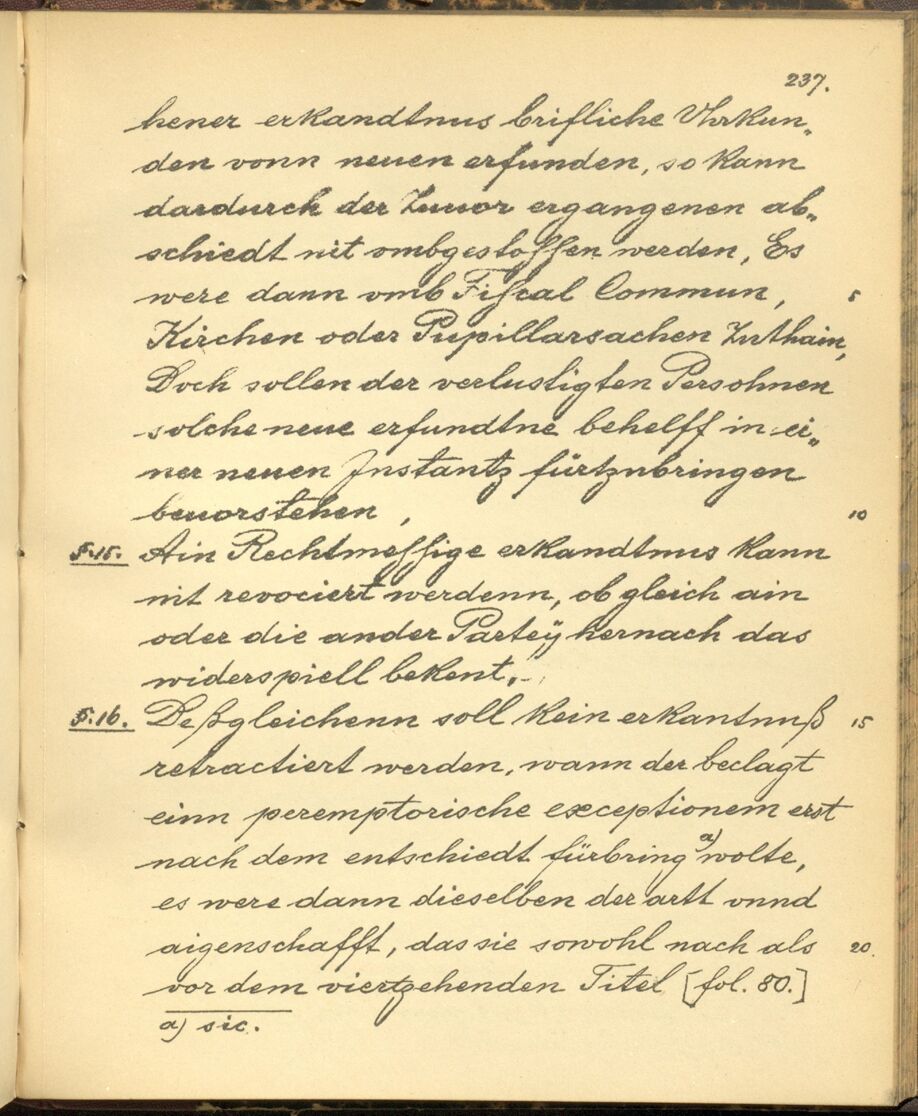 237.
hener erkandtnus brifliche Vhrkun„
den vonn neuen erfunden, so kann
dardurch der Zuuor ergangenen ab„
schiedt nit ombgestossen werden, Es
were dann vmb Fiscal Commun, 5
Kirchen oder Pupillarsachen Zuthain,
Doch sollen der verlustigten Persohnen
solche neue erfundtne behelff in ei„
ner neuen Instantz fürtzubringen
beuorstehen, 10
§.15. Ain Rechtmessige erkandtnus kann
nit revociert werdenn, ob gleich ain
oder die ander Parteÿ hernach das
widerspiell bekent.
§.16. Deßgleichenn soll kein erkantnuß 15
retractiert werden, wann der beclagt
einn peremptorische exceptionem erst
nach dem entschiedt fürbring a) wolte,
es were dann dieselben der artt vnnd
aigenschafft, das sie sowohl nach als 20.
vor dem viertzehenden Titel [fol. 80.]
a) sic.